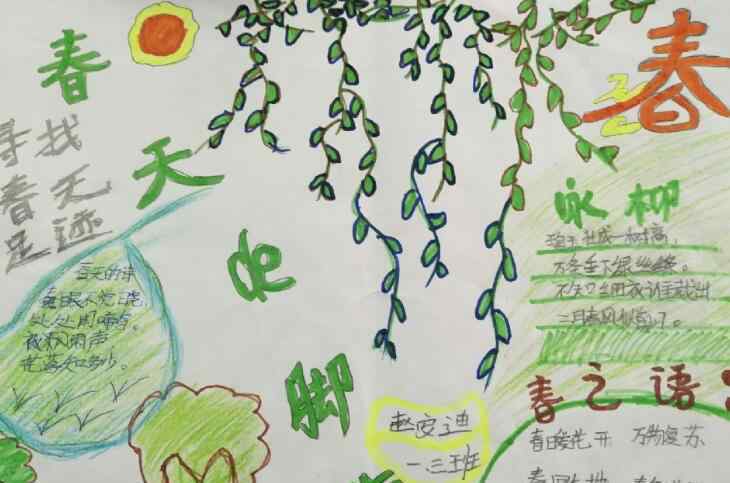 春
天
的
脚
寻找
春天
足迹
春眠不觉晓,
处处闻啼鸟。
夜来风雨声
花落知多少。
春
咏柳
碧玉妆成一树高,
万条垂下绿丝绦。
不知细叶谁裁出
二月春风似剪刀。
春之语
春暖花开 万物复苏
赵安迪
一三班